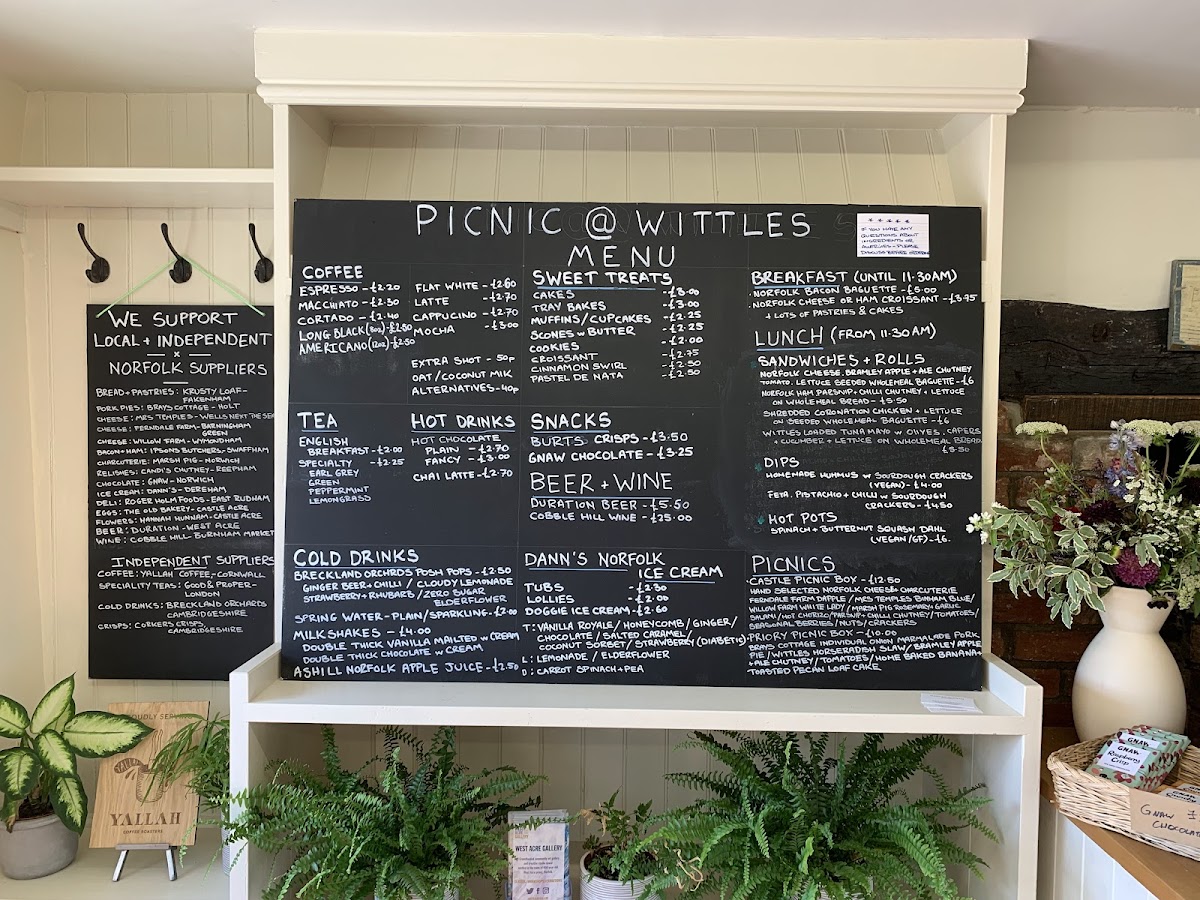 PICNIC @ WITTLES
MENU
* * * * *
IF YOU HAVE ANY
QUESTIONS ABOUT
INGREDIENTS OR
ALLERGIES - PLEASE
DISCUSS BEFORE ORDERING
COFFEE
ESPRESSO - £2.20
MACCHIATO - £2.30
CORTADO - £2.40
LONG BLACK (8oz) - £2.50
AMERICANO (12oz) - £2.50
FLAT WHITE - £2.60
LATTE - £2.70
CAPPUCINO - £2.70
MOCHA - £3.00
EXTRA SHOT - 50p
OAT/COCONUT MILK
ALTERNATIVES - 40p
TEA
ENGLISH
BREAKFAST - £2.00
SPECIALTY - £2.25
EARL GREY
GREEN
PEPPERMINT
LEMONGRASS
HOT DRINKS
HOT CHOCOLATE
PLAIN - £2.70
FANCY - £3.00
CHAI LATTE - £2.70
COLD DRINKS
BRECKLAND ORCHRDS POSH POPS - £2.50
GINGER BEER + CHILLI / CLOUDY LEMONADE
STRAWBERRY + RHUBARB / ZERO SUGAR
ELDERFLOWER
SPRING WATER - PLAIN/SPARKLING - £2.00
MILKSHAKES - £4.00
DOUBLE THICK VANILLA MALTED w CREAM
DOUBLE THICK CHOCOLATE w CREAM
ASHILL NORFOLK APPLE JUICE - £2.50
SWEET TREATS
CAKES - £3.00
TRAY BAKES - £3.00
MUFFINS/CUPCAKES - £2.25
SCONES w BUTTER - £2.25
COOKIES - £2.00
CROISSANT - £2.75
CINNAMON SWIRL - £2.50
PASTEL DE NATA - £2.50
SNACKS
BURTS CRISPS - £3.50
GNAW CHOCOLATE - £3.25
BEER + WINE
DURATION BEER - £5.50
COBBLE HILL WINE - £25.00
DANN'S NORFOLK
ICE CREAM
TUBS - £2.30
LOLLIES - £2.00
DOGGIE ICE CREAM - £2.60
T: VANILLA ROYALE / HONEYCOMB / GINGER /
CHOCOLATE / SALTED CARAMEL /
COCONUT SORBET / STRAWBERRY (DIABETIC)
L: LEMONADE / ELDERFLOWER
D: CARROT SPINACH + PEA
BREAKFAST (UNTIL 11.30AM)
NORFOLK BACON BAGUETTE - £5.00
NORFOLK CHEESE OR HAM CROISSANT - £3.95
+ LOTS OF PASTRIES & CAKES
LUNCH (FROM 11.30AM)
SANDWICHES + ROLLS
NORFOLK CHEESE, BRAMLEY APPLE + ALE CHUTNEY
TOMATO, LETTUCE SEEDED WHOLEMEAL BAGUETTE - £6
NORFOLK HAM PARSNIP + CHILLI CHUTNEY + LETTUCE
ON WHOLEMEAL BREAD - £5.50
SHREDDED CORONATION CHICKEN + LETTUCE
ON SEEDED WHOLEMEAL BAGUETTE - £6
WITTLES LOADED TUNA MAYO w OLIVES, CAPERS
+ CUCUMBER + LETTUCE ON WHOLEMEAL BREAD
£5.50
DIPS
HOMEMADE HUMMUS w SOURDOUGH CRACKERS
(VEGAN) - £4.00
FETA, PISTACHIO + CHILLI w SOURDOUGH
CRACKERS - £4.50
HOT POTS
SPINACH + BUTTERNUT SQUASH DAHL
(VEGAN/GF) - £6.
PICNICS
CASTLE PICNIC BOX - £12.50
HAND SELECTED NORFOLK CHEESE + CHARCUTERIE
FERNDALE FARM DAPPLE / MRS TEMPLES BINHAM BLUE /
WILLOW FARM WHITE LADY / MARSH PIG ROSEMARY GARLIC
SALAMI / HOT CHORIZO / PARSNIP + CHILLI CHUTNEY / TOMATOES /
SEASONAL BERRIES / NUTS / CRACKERS
PRIORY PICNIC BOX - £10.00
BRAYS COTTAGE INDIVIDUAL ONION MARMALADE PORK
PIE / WITTLES HORSERADISH SLAW / BRAMLEY APPLE
+ ALE CHUTNEY / TOMATOES / HOME BAKED BANANA +
TOASTED PECAN LOAF CAKE
WE SUPPORT
LOCAL + INDEPENDENT
x
NORFOLK SUPPLIERS
BREAD + PASTRIES: KRUSTY LOAF -
FAKENHAM
PORK PIES: BRAYS COTTAGE - HOLT
CHEESE: MRS TEMPLES - WELLS NEXT THE SEA
CHEESE: FERNDALE FARM - BARNINGHAM
GREEN
CHEESE: WILLOW FARM - WYMONDHAM
BACON + HAM: IPSONS BUTCHERS - SWAFFHAM
CHARCUTERIE: MARSH PIG - NORWICH
RELISHES: CANDI'S CHUTNEY - REEPHAM
CHOCOLATE: GNAW - NORWICH
ICE CREAM: DANN'S - DEREHAM
DELI: ROGER HOLM FOODS - EAST RUDHAM
EGGS: THE OLD BAKERY - CASTLE ACRE
FLOWERS: HANNAH HUNNAM - CASTLE ACRE
BEER: DURATION - WEST ACRE
WINE: COBBLE HILL BURNHAM MARKET
INDEPENDENT SUPPLIERS
COFFEE: YALLAH COFFEE - CORNWALL
SPECIALITY TEAS: GOOD & PROPER -
LONDON
COLD DRINKS: BRECKLAND ORCHARDS
CAMBRIDGESHIRE
CRISPS: CORKERS CRISPS,
CAMBRIDGESHIRE
PROUDLY SERVING
YALLAH
COFFEE ROASTERS
WEST ACRE GALLERY
GNAW
Raspberry
Crisp
GNAW
CHOCOLATE